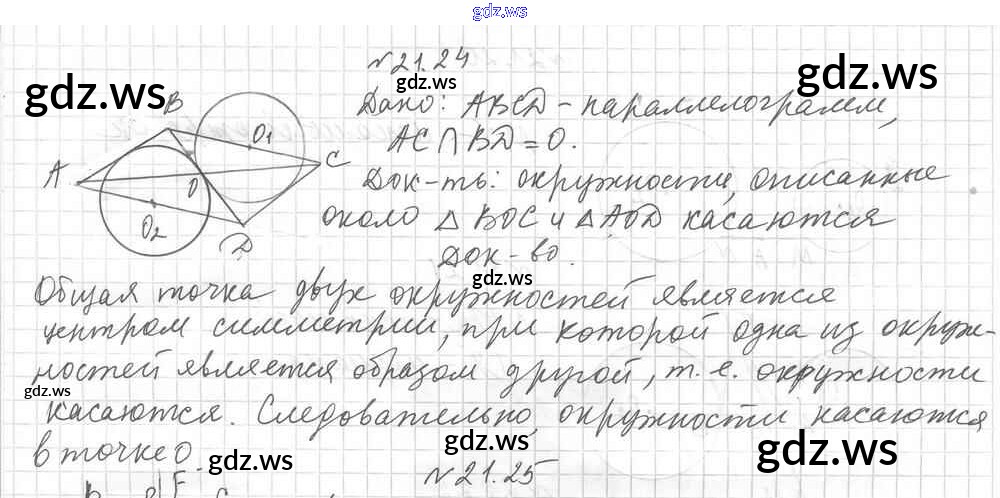 gdz.ws
№21.24
Дано: ABCD - параллелограмм,
AC∩BD=O.
Док-ть: окружности, описанные
около △BOC и △AOD касаются
Док-во.
Общая точка двух окружностей является
центром симметрии, при которой одна из окруж-
ностей является образом другой, т.е. окружности
касаются. Следовательно, окружности касаются
в точке O.
№21.25
B
O1
A
O
C
O2
D
gdz.ws
gdz.ws
gdz.ws
gdz.ws
gdz.ws
gdz.ws
gdz.ws
gdz.ws